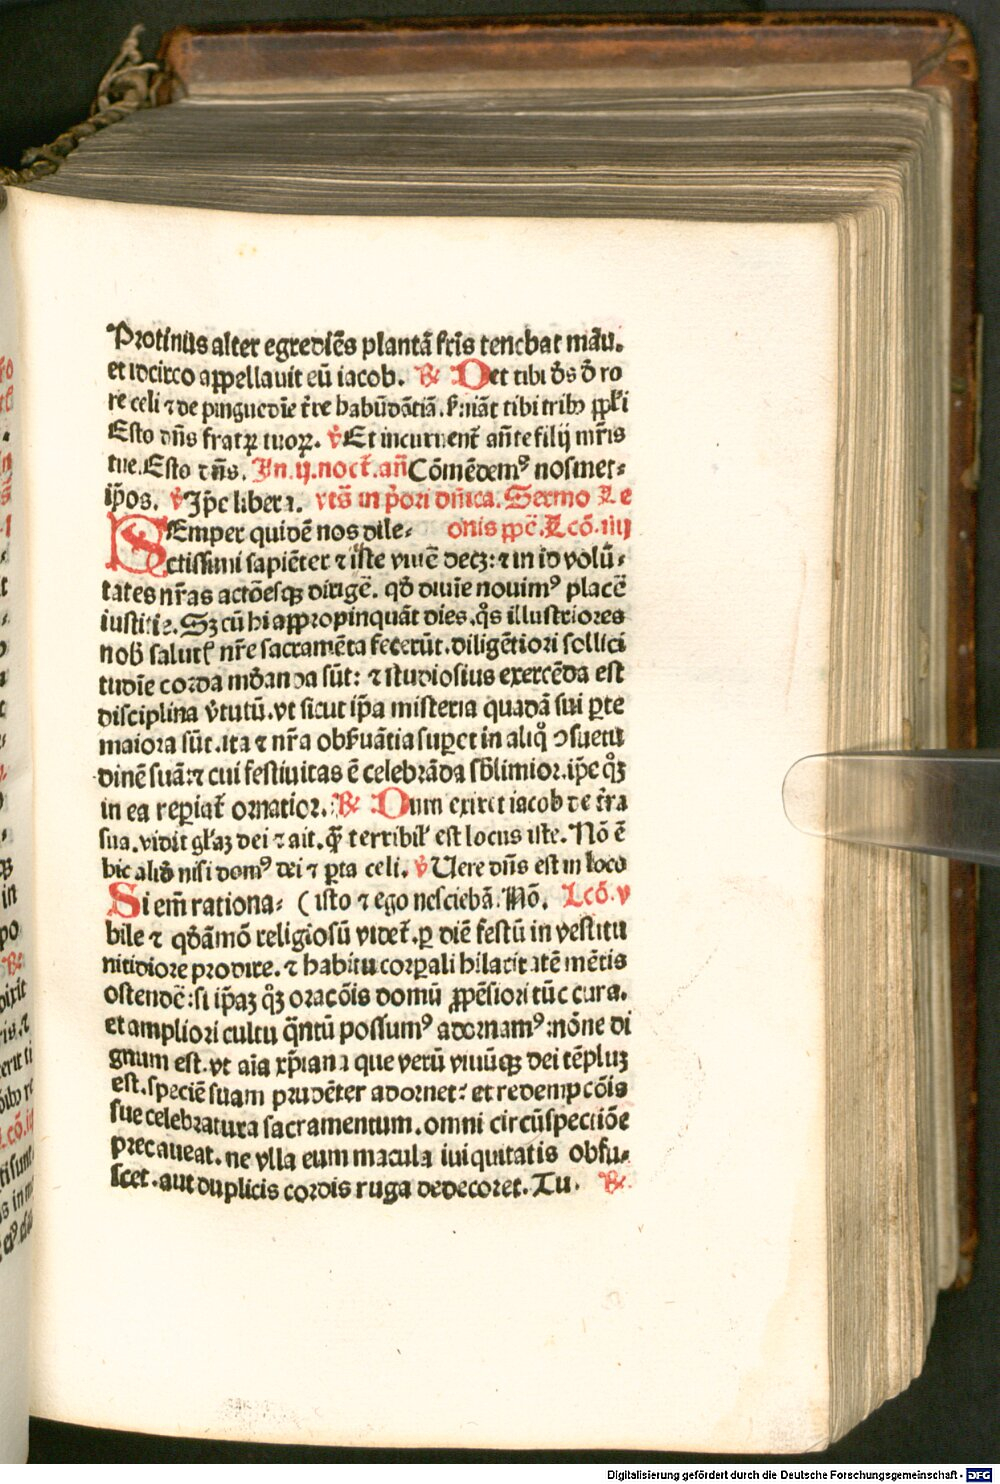 Protinus alter egrediēs plantā fr̄is tenebat manū.
et idcirco appellauit eū iacob. ℟ Det tibi de͞s d̄ ro
re celi ⁊ de pinguedīe t̄re habūdātiā. ẜuiāt tibi tribꝰ ⁊ pp̄li
Esto dn̄s fratrꝝ tuoꝝ. ℣ Et incuruent̄ an̄te filij mr̄is
tue. Esto dn̄s. In .ij. noct̄. an̄ Cōmēdemꝰ nosmet⸗
ip̄os. ℣ Ip̄e liber a. vts̄ in p̄ori dn̄ica. Sermo Le
SEmper quidē nos dile⸗ onis pp̄e. Lcō. iiij
ctissimi sapiēter ⁊ iuste viuē decꝫ: ⁊ in id volū⸗
tates nr̄as actōesqꝫ dirigē. qd̄ diuīe nouimꝰ placē
iusticie. Sꝫ cū hi appropinquāt dies. qͦs illustriores
nob̄ salut̄ nr̄e sacramēta fecerūt. diligētiori sollici
tudīe corda mūdanda sūt: ⁊ studiosius exercēda est
disciplina v̄tutū. vt sicut ip̄a misteria quadā sui ꝑte
maiora sūt. ita ⁊ nr̄a obẜuātia suꝑet in aliqͦ ꝯsuetu
dinē suā: ⁊ cui festiuitas ē celebrāda sb̄limior. ip̄e qͦꝫ
in ea reꝑiat̄ ornatior. ℟ Dum exiret iacob de t̄ra
sua. vidit gl̄aꝫ dei ⁊ ait. qͣ terribil̄ est locus iste. Nō ē
hic aliud nisi domꝰ dei ⁊ ꝑta celi. ℣ Uere dn̄s est in loco
Si em̄ rationa⸗ ( isto ⁊ ego nesciebā. Nō. Lcō. v
bile ⁊ qd̄āmō religiosū videt̄. ꝑ diē festū in vestitu
nitidiore prodire. ⁊ habitu corꝑali hilaritatē mētis
ostendē: si ip̄aꝫ qͦꝫ oracōis domū ꝓpēsiori tūc cura.
et ampliori cultu qͣntū possumꝰ adornamꝰ: nōne di
gnum est. vt aīa xp̄iana que verū viuūqꝫ dei tēpluꝫ
est. speciē suam prudēter adornet: et redempcōis
sue celebratura sacramentum. omni circūspectiōe
precaueat. ne vlla eum macula iniquitatis obfu⸗
scet. aut duplicis cordis ruga dedecoret. Tu. ℟
Digitalisierung gefördert durch die Deutsche Forschungsgemeinschaft - DFG